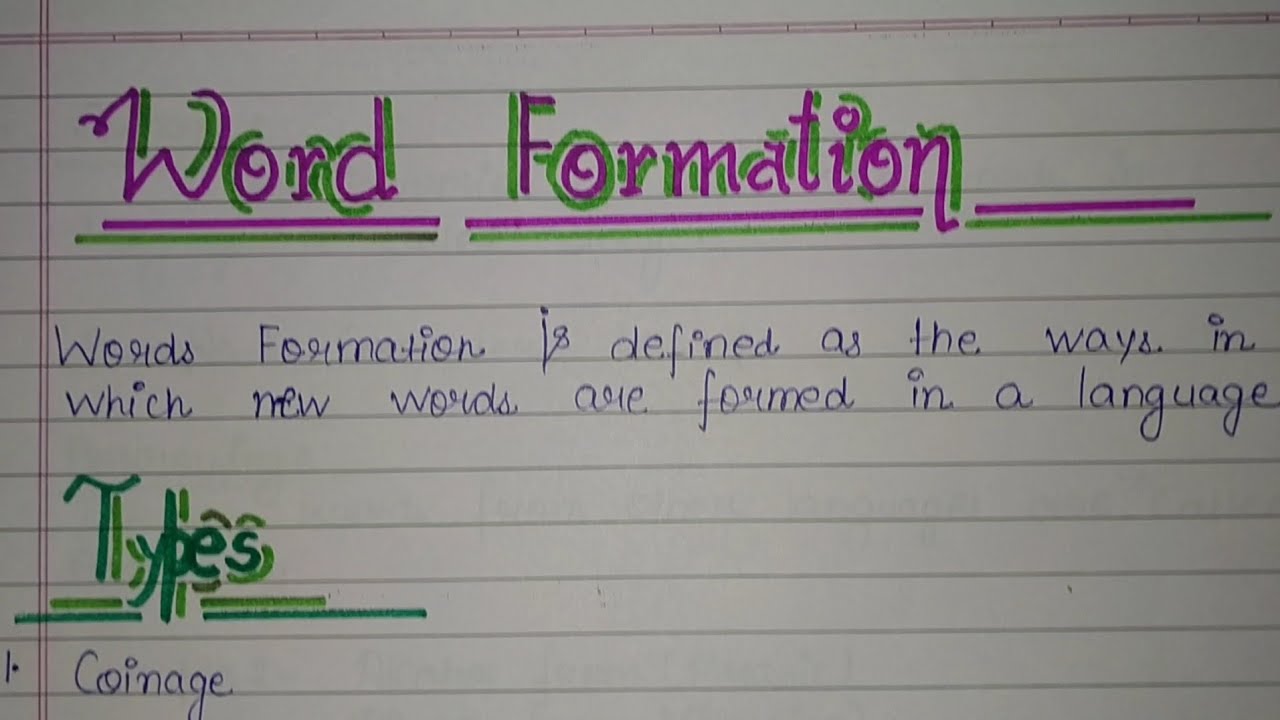 Word Formation
Words Formation is defined as the ways in
which new words are formed in a language
Types
1. Coinage